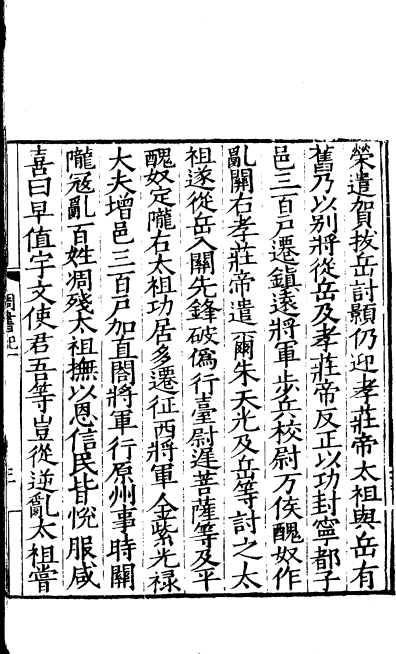 榮遣賀拔岳討顥仍迎孝莊帝太祖與岳有
舊乃以別將從岳及孝莊帝反正以功封寧都子
邑三百戶遷鎮遠將軍步兵校尉万俟醜奴作
亂關右孝莊帝遣爾朱天光及岳等討之太
祖遂從岳入關先鋒破僞行臺尉遲菩薩等及平
醜奴定隴右太祖功居多遷征西將軍金紫光禄
大夫增邑三百戶加直閤將軍行原州事時關
隴冦亂百姓凋殘太祖撫以恩信民甘恱服咸
喜曰早值宇文使君吾等豈從逆亂太祖嘗
周書紀一
三